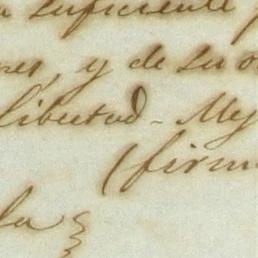 suficiente
y de su
libertad - My
(firm
la